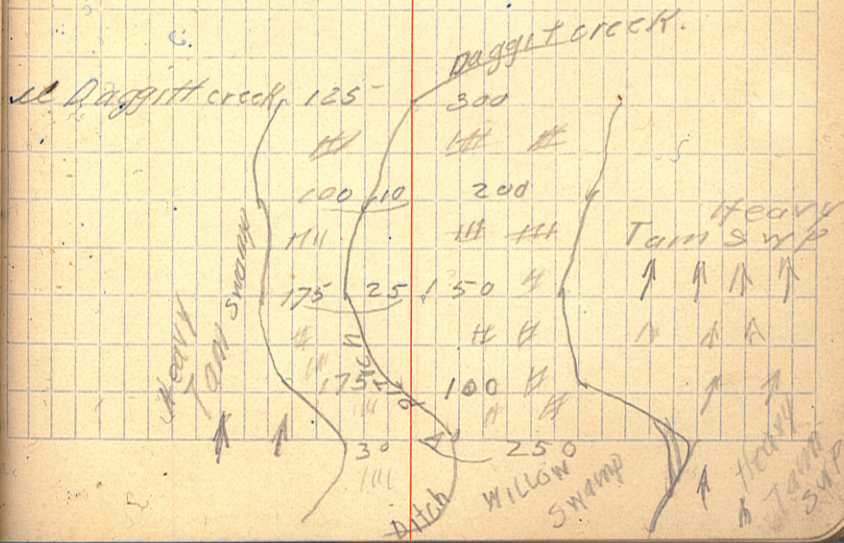 Daggit creek.
Daggitt creek 125 300
100 10 200
Heavy
Tam Swp
175 25 150
Heavy
Tam swamp
175 100
30 250
Willow
Swamp
Ditch
Heavy
Tam
Swp